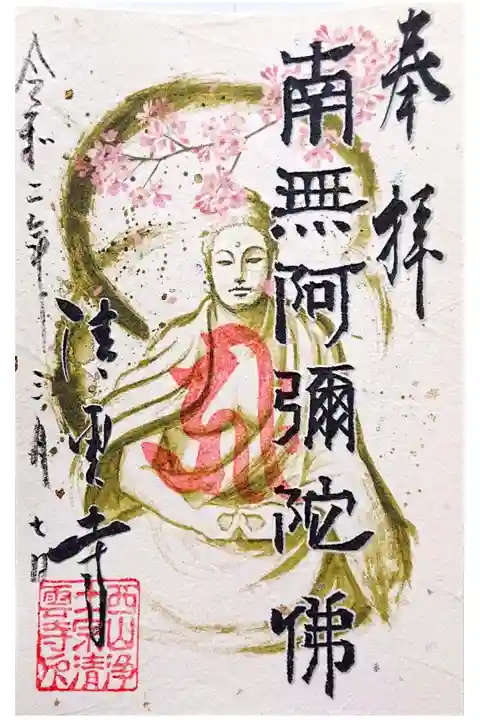 奉拝
南無阿彌陀佛
清雲寺
令和二年三月七日
西山浄
土宗清
雲寺印